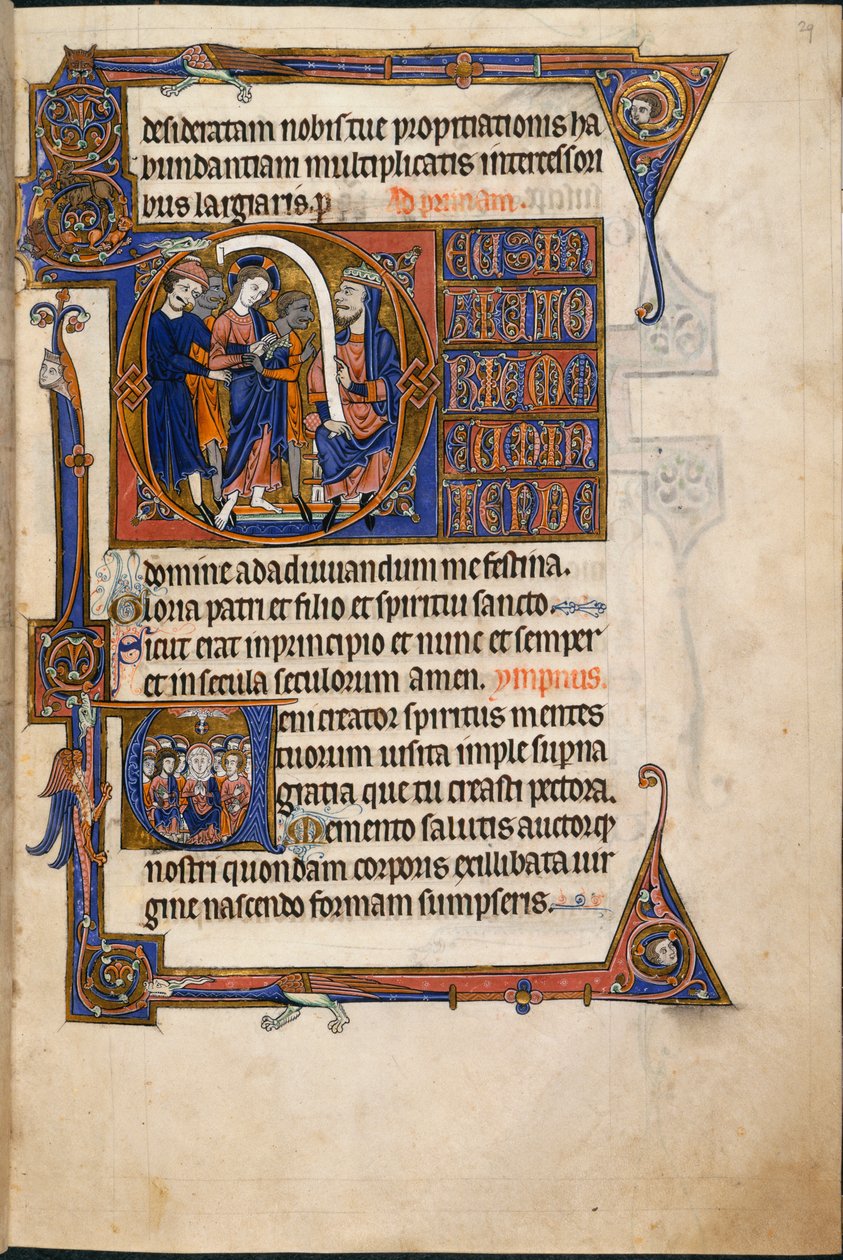 29
desideratam nobis tue propitiationis ha
bundantiam multiplicatis intercessori
bus largiaris. p Ad primam.
DEUSIN
ADIUTO
RIUM M
EUM IN
TENDE
domine ad adiuuandum me festina.
Gloria patri et filio et spiritui sancto
Sicut erat in principio et nunc et semper
et in secula seculorum amen. ympnus.
Veni creator spiritus mentes
tuorum uisita imple suꝑna
gratia que tu creasti pectora.
Memento salutis auctor ꝙ
nostri quondam corporis ex illibata uir
gine nascendo formam sumpseris.